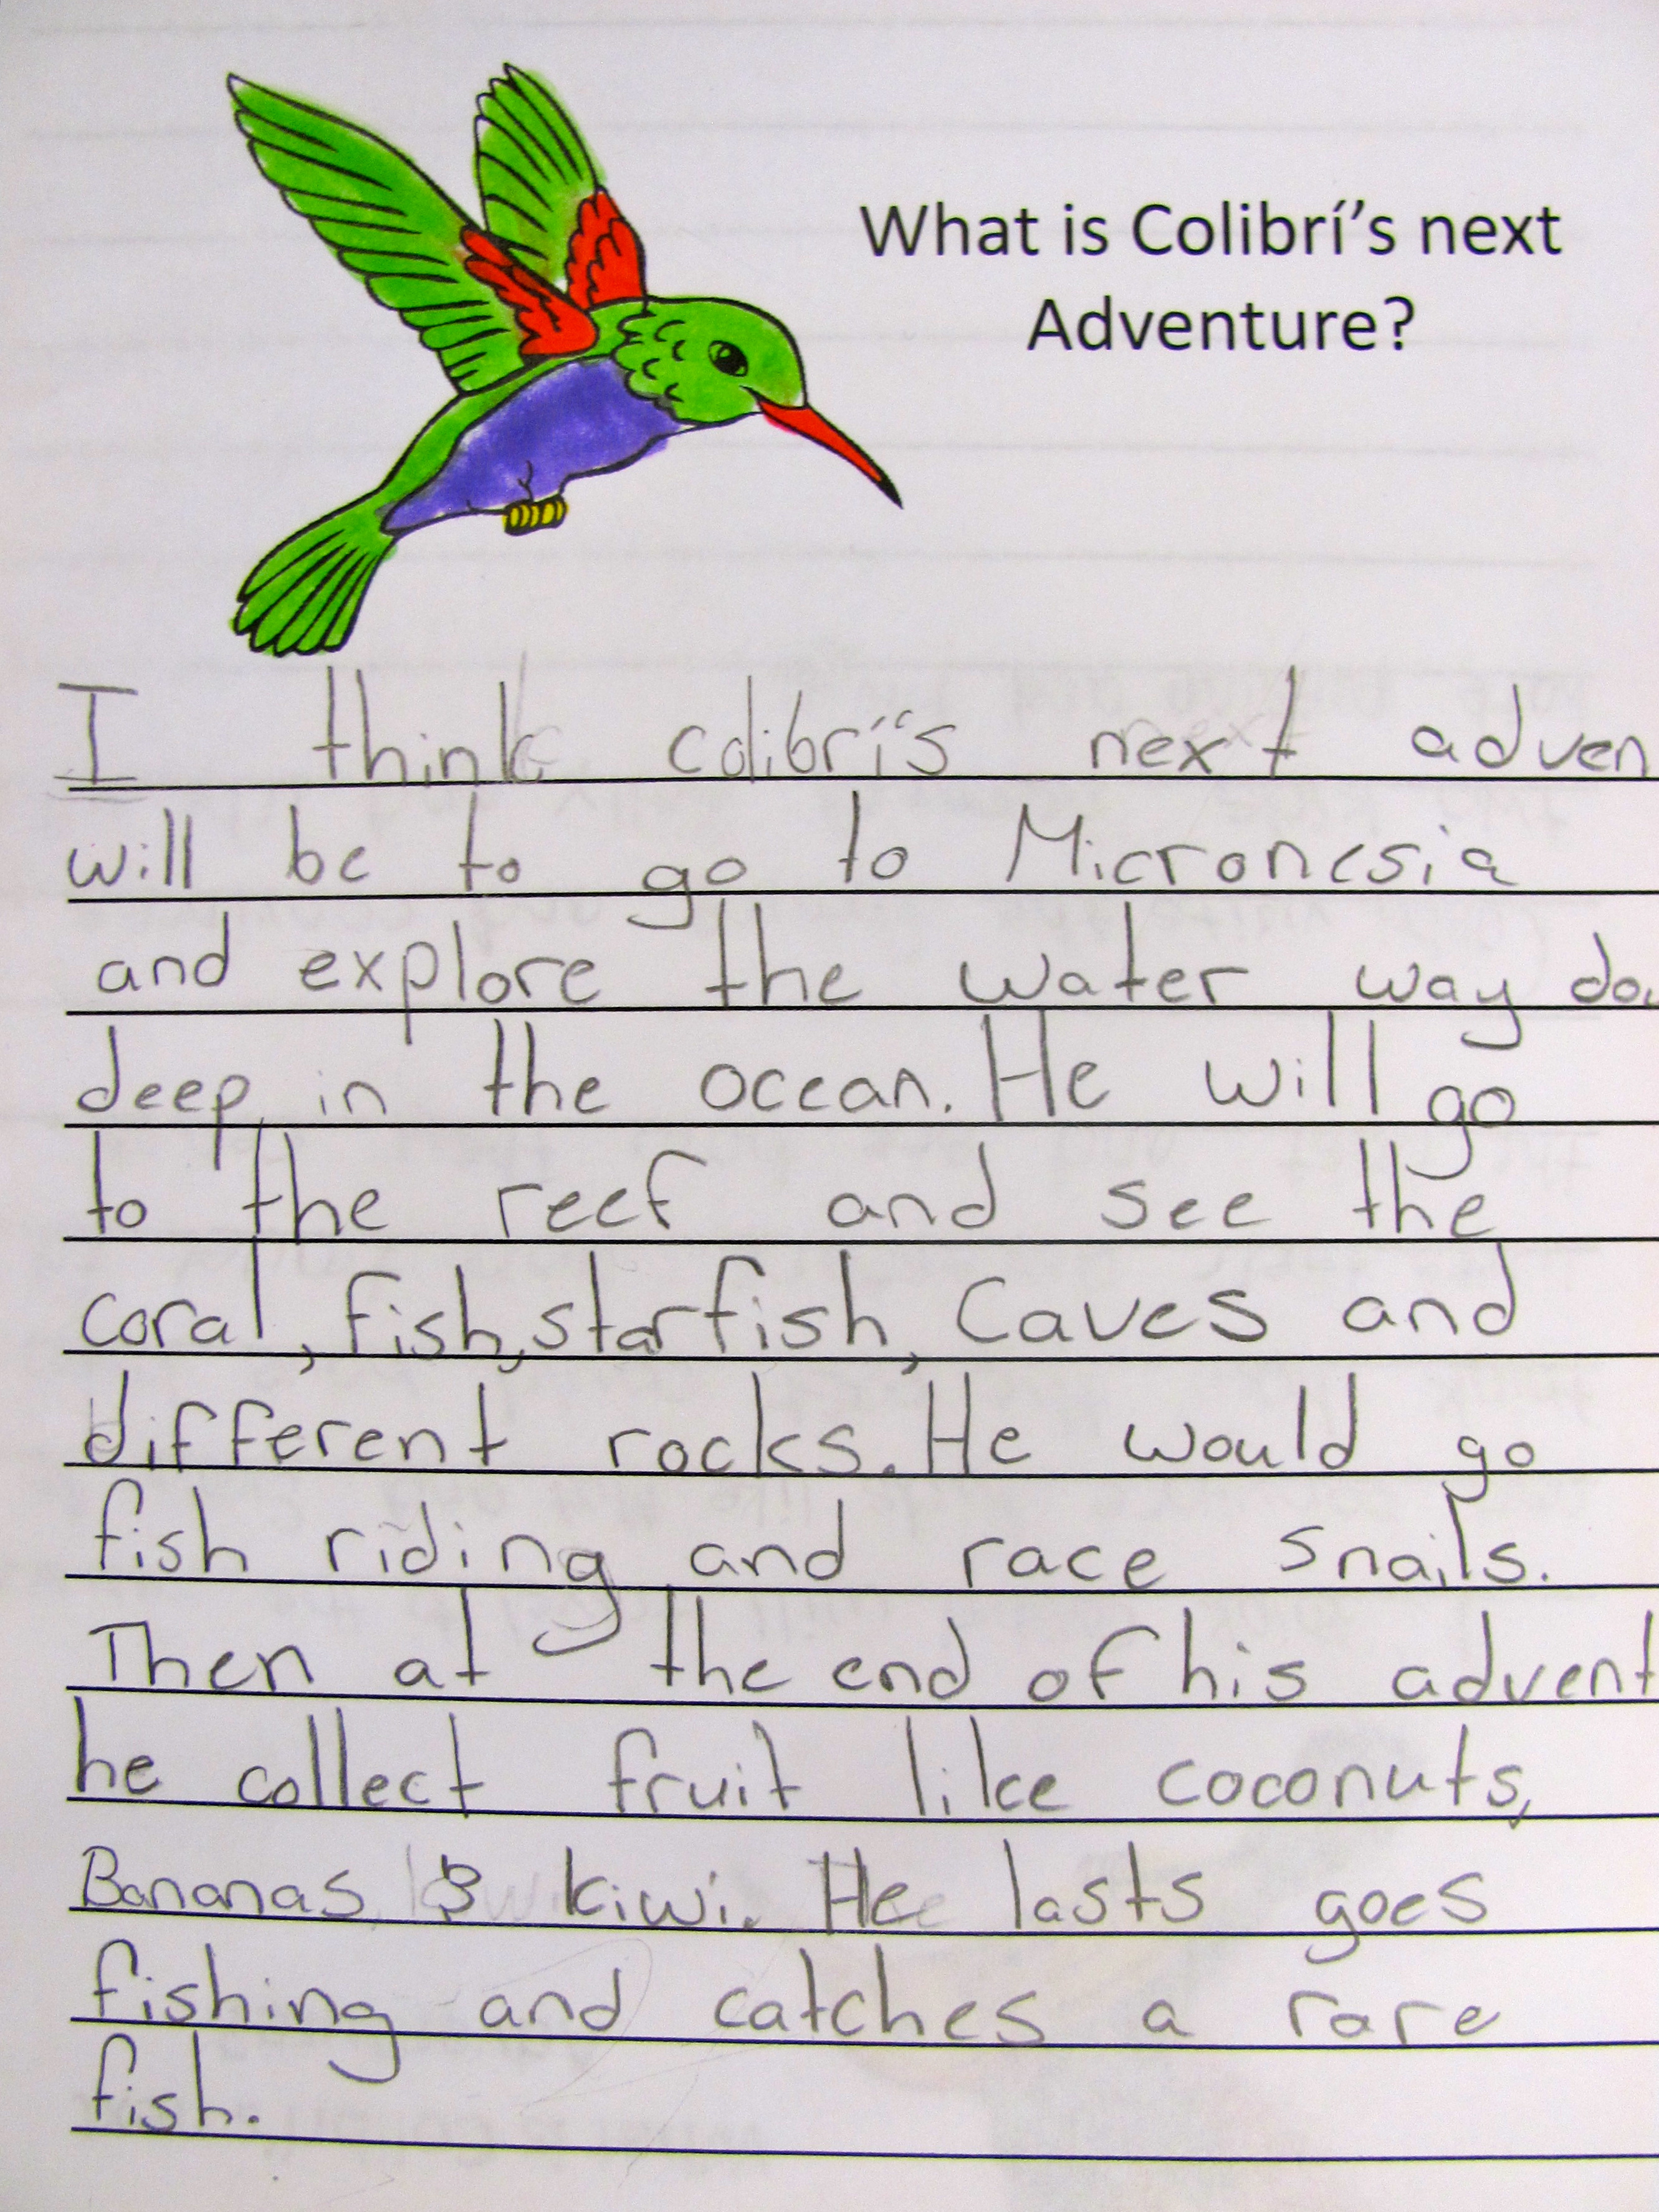 What is Colibrí's next
Adventure?
I think colibrí's next adven
will be to go to Micronesia
and explore the water way do
deep in the ocean. He will go
to the reef and see the
coral, fish, starfish, Caves and
different rocks. He would go
fish riding and race snails.
Then at the end of his advent
he collect fruit like coconuts,
Bananas & kiwi. He lasts goes
fishing and catches a rare
fish.